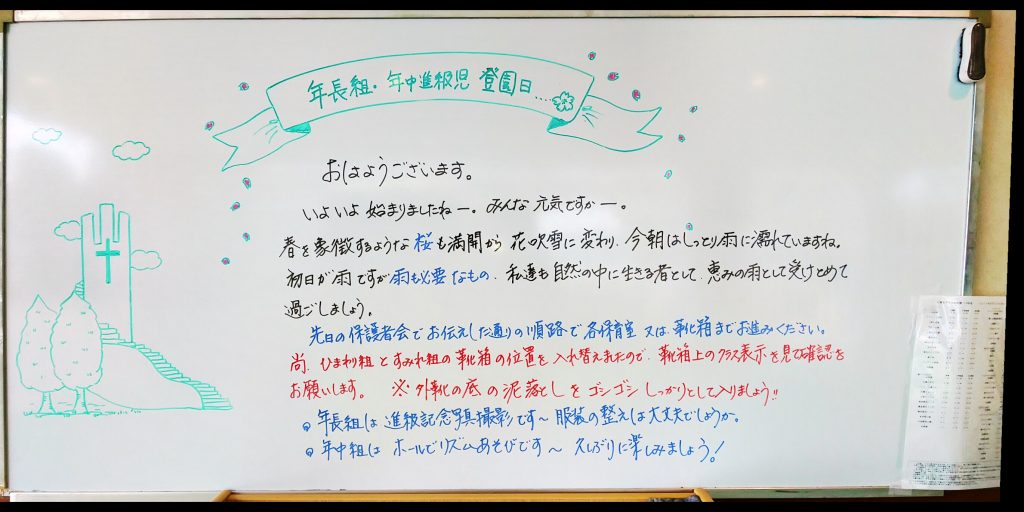 年長組・年中進級児 登園日....
おはようございます。
いよいよ 始まりましたねー。みんな 元気ですかー。
春を象徴するような 桜も満開から 花吹雪に変わり、今朝はしっとり雨に濡れていますね。
初日が雨ですが雨も必要なもの、私達も自然の中に生きる者として、恵みの雨として受けとめて
過ごしましょう。
先日の保護者会でお伝えした通りの順路で各保育室 又は、靴箱までお進みください。
尚、ひまわり組とすみれ組の靴箱の位置を入れ替えましたので、靴箱上のクラス表示を見て確認を
お願いします。 ※ 外靴の底の泥落としをゴシゴシしっかりとして入りましょう!!
◎ 年長組は 進級記念写真撮影です〜 服装の整えは大丈夫でしょうか。
◎ 年中組は ホールでリズムあそびです 〜 久しぶりに楽しみましょう!